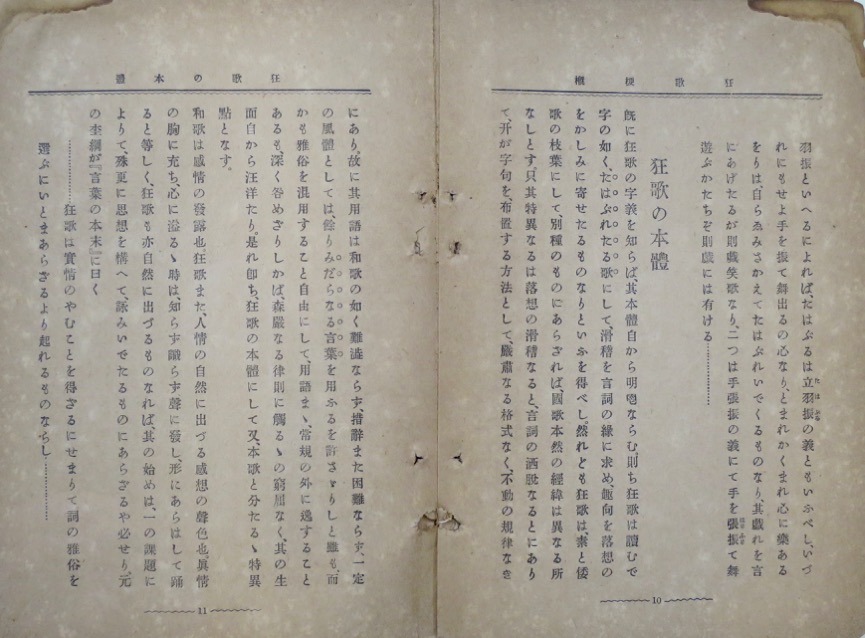 狂歌梗概
羽振といへるによれば、たはぶるは立羽振の義ともいふべし、いづ
れにもせよ手を振て舞出るの心なり、とまれかくまれ心に樂ある
をりは、自らゑみさかえてたはぶれいでくるものなり、其戯れを言
にあげたるが則戯笑歌なり、二つは手張振の義にて手を張振て舞
遊ぶかたちぞ則戯には有ける…………
狂歌の本體
既に狂歌の字義を知らば、其本體自から明瞭ならむ、則ち狂歌は讀むで
字の如く、たはぶれたる歌にして、滑稽を言詞の緣に求め、趣向を落想の
をかしみに寄せたるものなりといふを得べし。然れども狂歌は、素と倭
歌の枝葉にして、別種のものにあらざれば、國歌本然の經緯は異なる所
なしとす。只、其特異なるは落想の滑稽なると、言詞の洒脫なるとにあり
て、幵が字句を、布置する方法として、嚴肅なる格式なく、不動の規律なき
10
狂歌の本體
にあり。故に其用語は和歌の如く難澁ならず、措辭また困難ならず、一定
の風體としては、餘りみだらなる言葉を用ふるを許さゞりしと雖も、而
かも雅俗を混用すること自由にして、用語まゝ、常規の外に逸すること
あるも、深く咎めざりしかば、森嚴なる律則に觸るゝの窮屈なく、其の生
面自から汪洋たり。是れ卽ち、狂歌の本體にして又、本歌と分たるゝ特異
點となす。
和歌は感情の發露也。狂歌また、人情の自然に出づる感想の聲色也。眞情
の胸に充ち、心に溢るゝ時は、知らず識らず聲に發し、形にあらはして踊
ると等しく、狂歌も亦自然に出づるものなれば、其の始めは、一の課題に
よりて、殊更に思想を構へて、詠みいでたるものにあらざるや必せり。元
の杢綱が『言葉の本末』に曰く
…………狂歌は實情のやむことを得ざるにせまりて詞の雅俗を
選ぶにいとまあらざるより起れるものならし…………
11